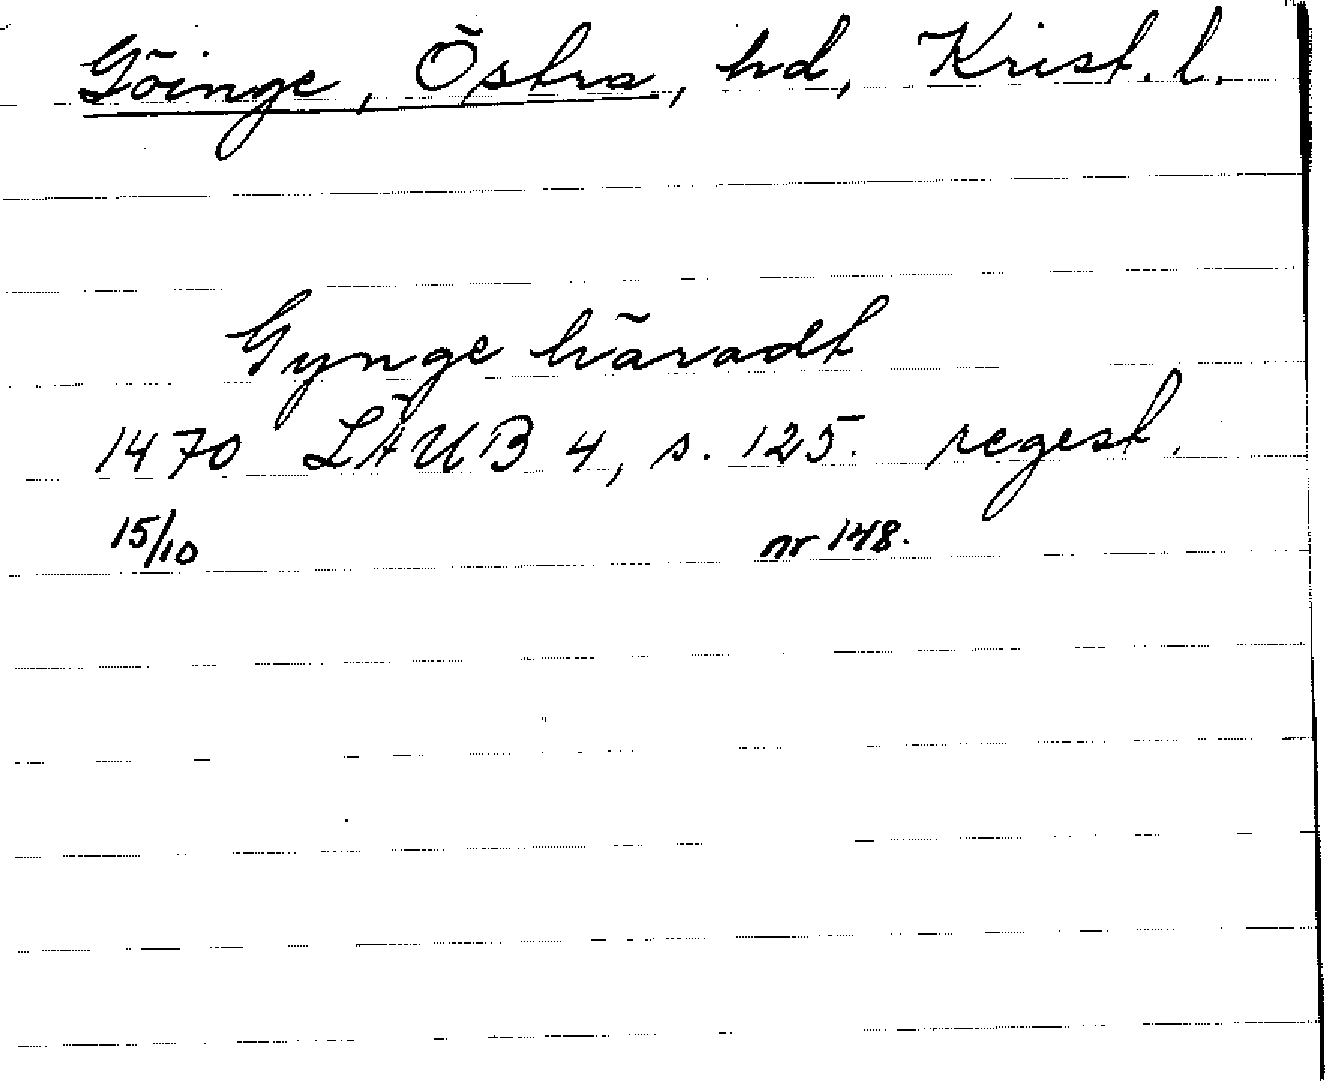 Göinge, Östra, hd, Krist. l.
Gynge häradt
1470 LÄUB 4, s. 125. regest.
15/10 nr 148.